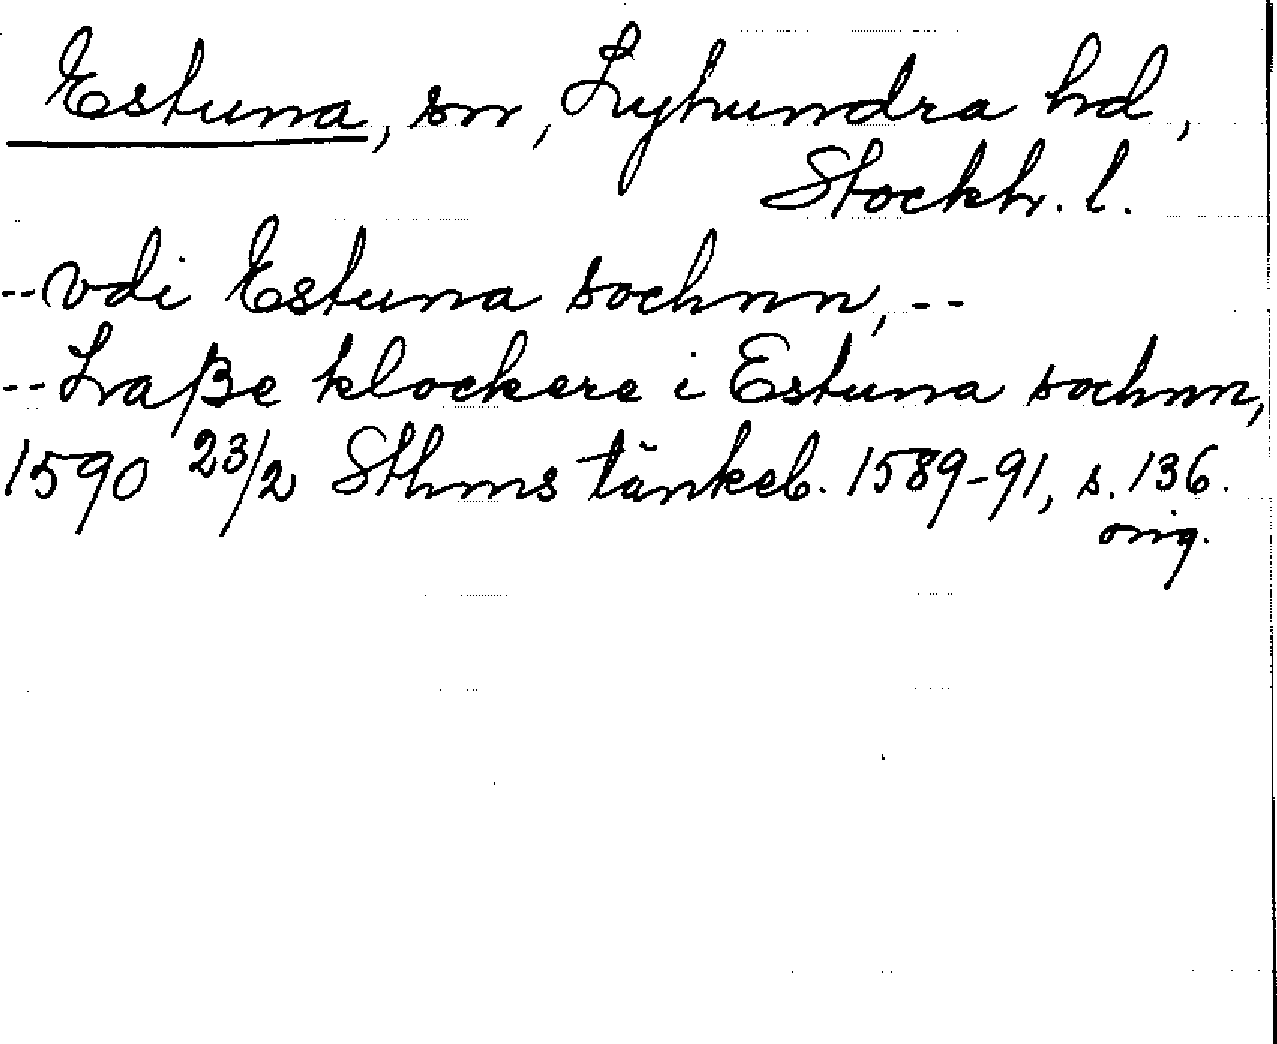 Estuna, sn, Lyhundra hd,
Stockh. l.
--vdi Estuna sochnn, --
--Laße klockere i Estuna sochnn,
1590 23/2 Sthms tänkeb. 1589-91, s. 136.
orig.